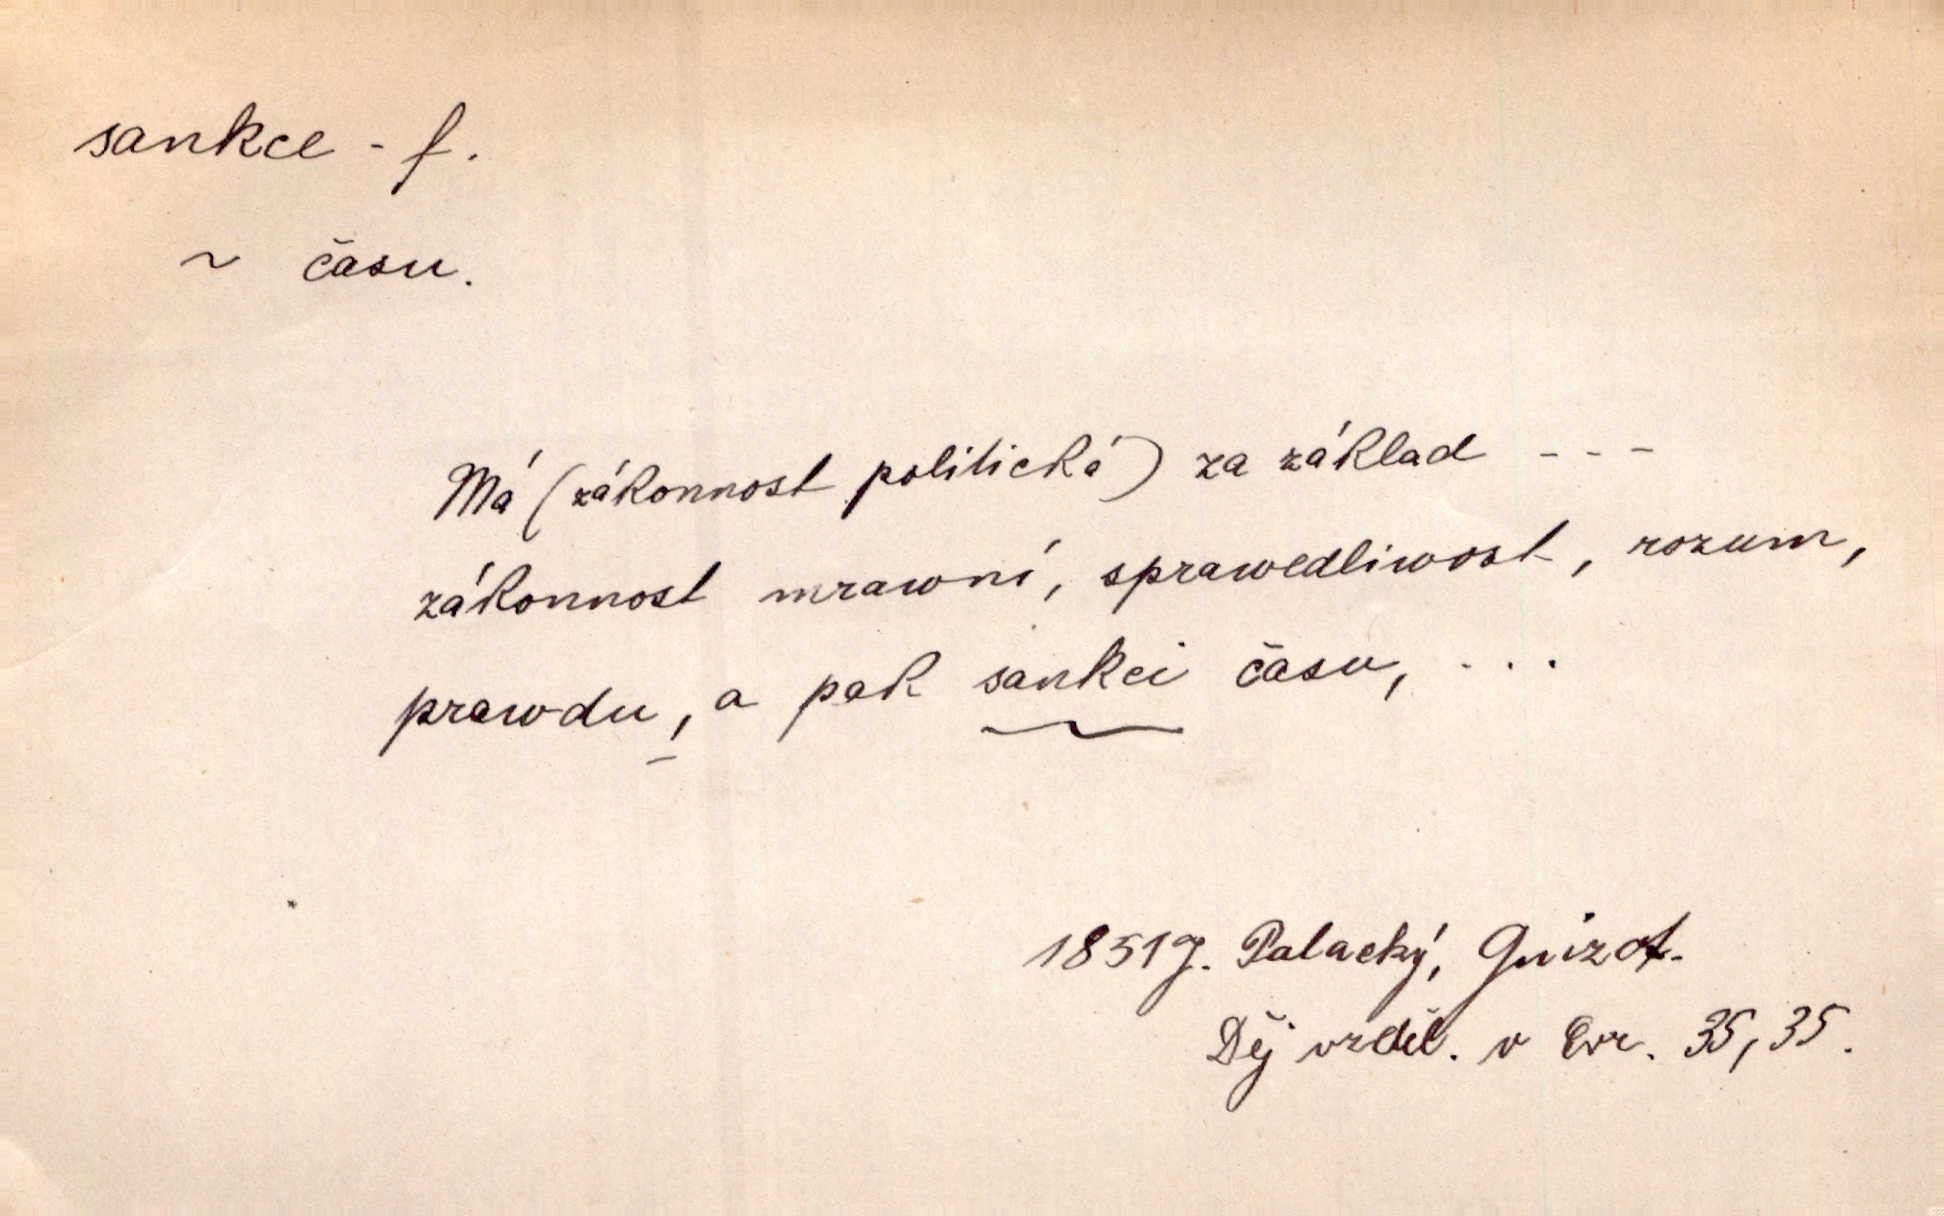 sankce - f.
~ času.
Má (zákonnost politická) za základ - - -
zákonnost mrawní, sprawedliwost, rozum,
prawdu, a pak sankci času, . . .
1851 J. Palacký, Guizot.
Děj vzděl. v Evr. 35, 35.